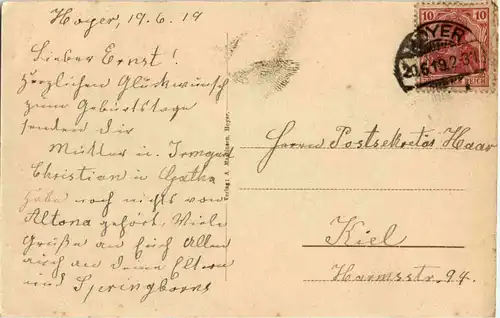 Hoyer, 19.6.19
Lieber Ernst!
Herzlichen Glückwunsch
zum Geburtstage
senden dir
Mutter u. Irmgard
Christian u. Agatha
habe noch nichts von
Altona gehört. Viele
Grüße an Euch Allen
auch an deine Eltern
und Springborns
Verlag: A. Hoyer.
10 10
HOYER
20.6.19.2-3
REICH
Herrn Postsekretär Haar
Kiel
Harmsstr. 94.